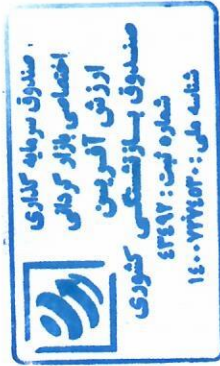 صندوق سرمایه گذاری
اختصاصی بازار گردانی
ارزش آفرین
صندوق بازنشستگی کشوری
شماره ثبت: ۴۳۴۱۷
شناسه ملی: ۱۴۰۰۷۷۷۴۵۳۰